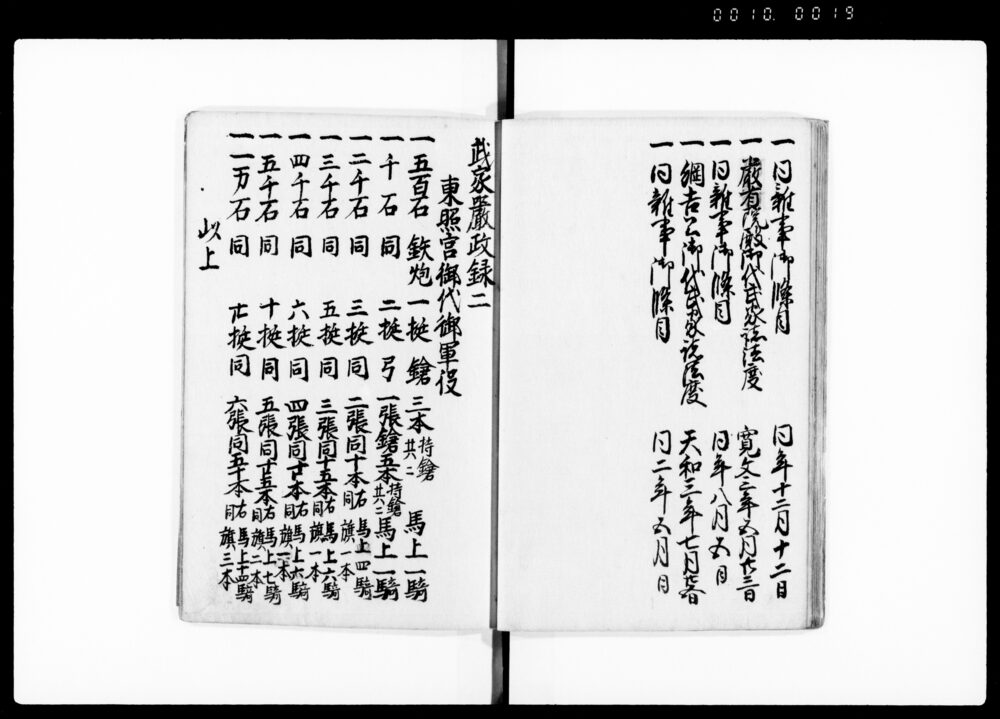 0010. 0019
一 同雑事御條目 同年十二月十二日
一 嚴有院殿御代武家諸法度 寛文三年五月廿三日
一 同雑事御條目 同年八月五日
一 綱吉公御代武家諸法度 天和三年七月廿五日
一 同雑事御條目 同二年五月日
武家嚴政録二
東照宮御代御軍役
一 五百石 鉄炮 一挺 鎗 三本 持鎗共ニ 馬上一騎
一 千石 同 二挺 弓 一張 鎗五本 持鎗共ニ 馬上一騎
一 二千石 同 三挺 同 二張 同十本 右同 馬上四騎 旗一本
一 三千石 同 五挺 同 三張 同十五本 右同 馬上六騎 旗一本
一 四千石 同 六挺 同 四張 同廿本 右同 馬上六騎 旗一本
一 五千石 同 十挺 同 五張 同廿五本 右同 馬上七騎 旗二本
一 一万石 同 廿挺 同 六張 同五十本 右同 馬上十四騎 旗三本
以上